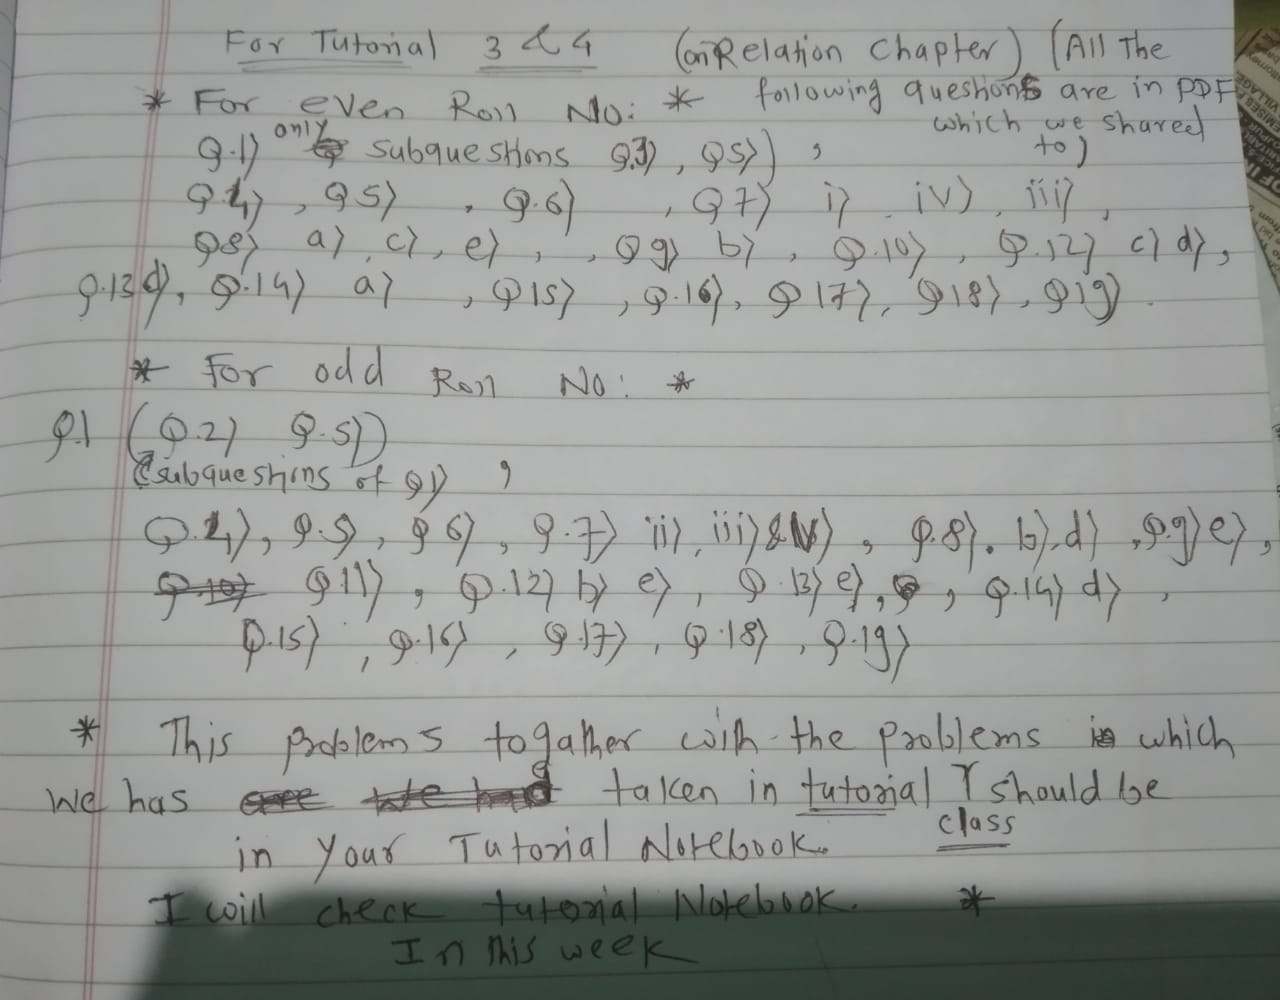 For Tutorial 3 & 4 (on Relation Chapter) (All The
* For even Roll No: * following questions are in PDF
which we shared
Q.1) only subquestions Q.3), Q5)), to)
Q.4), Q5), Q.6), Q7) i) iv), iii),
Q8) a), c), e), , Q9) b), Q.10), Q.12) c) d),
Q.13 d), Q.14) a) , Q15), Q.16), Q17), Q18), Q19).
* For odd Roll No: *
Q.1 (Q.2) Q.5))
(subquestions of Q1) ,
Q.4), Q.5), Q6), Q.7) ii), iii) & iv), Q.8). b), d), Q.9) e),
Q.11), Q.12) b) e), Q.13) e), , Q.14) d),
Q.15), Q.16), Q.17), Q.18), Q.19)
* This problems togather with the problems which
we has taken in tutorial should be
class
in your Tutorial Notebook.
I will check tutorial Notebook. *
In this week